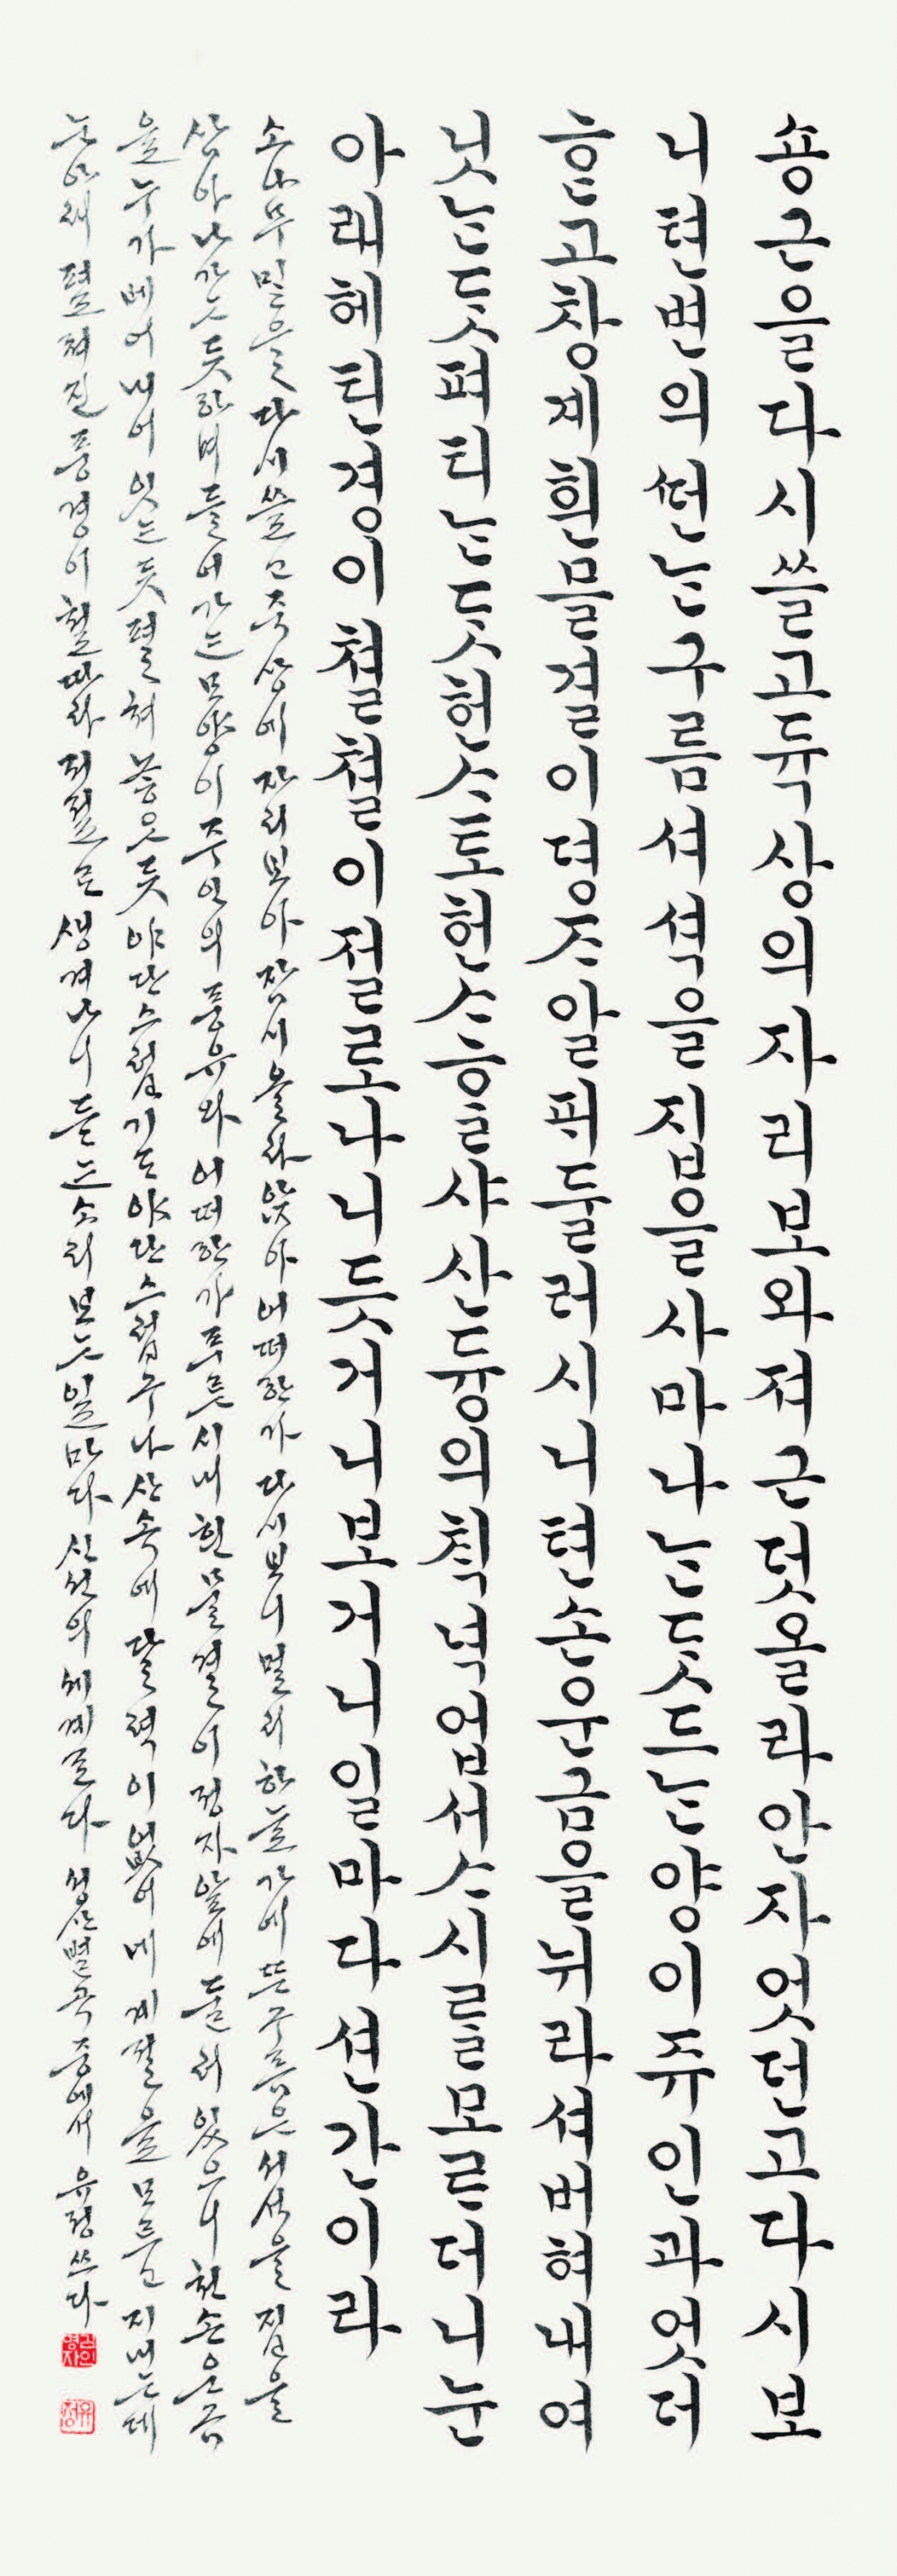 숑근을다시쓸고듁상의자리보와져근덧올라안자엇던고다시보
니텬변의ᄯᅥᆫ는구름셔셕을집을사마나는듯드는양이쥬인과엇더
흔고창계흰믈결이뎡ᄌᆞ알ᄑᆡ둘러시니텬손운금을뉘라셔버혀내여
닛는듯펴티는듯헌ᄉᆞ토헌ᄉᆞᄒᆞᆯ샤산듕의ᄎᆡᆨ녁업서ᄉᆞ시ᄅᆞᆯ모르더니눈
아래헤틴경이쳘쳘이졀로나니듯거니보거니일마다션간이라
소나무밑을다시쓸고죽상에자리보아잠시올라앉아어떠한가다시보니멀리하늘가에뜬구름은서석을집을
삼아나가는듯하며들어가는모양이주인의풍류와어떠한가푸른시내흰물결이정자앞에둘러있으니천손운금
을누가베어내어잇는듯펼쳐놓은듯야단스럽기도야단스럽구나산속에달력이없어네계절을모르고지내는데
눈아래펼쳐진풍경이철따라저절로생겨나니듣는소리보는일마다신선의세계로다성산별곡중에서유정쓰다
유정